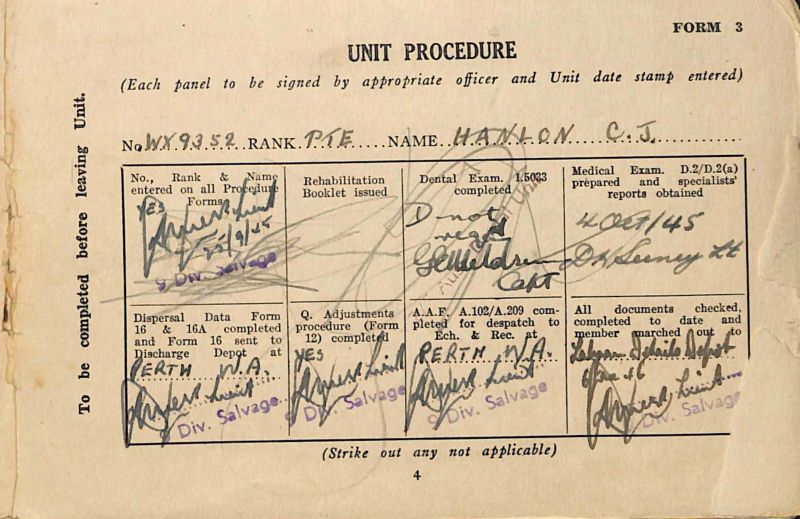 FORM 3
UNIT PROCEDURE
(Each panel to be signed by appropriate officer and Unit date stamp entered)
To be completed before leaving Unit.
No WX9352 RANK PTE NAME HANLON C. J.
No., Rank & Name
entered on all Procedure
Forms
YES
Lieut
22/9/45
9 Div. Salvage
Rehabilitation
Booklet issued
Dental Exam. I.5033
completed
D not
reqd
Capt
Medical Exam. D.2/D.2(a)
prepared and specialists'
reports obtained
4 Oct/45
Lt
Dispersal Data Form
16 & 16A completed
and Form 16 sent to
Discharge Depot at
PERTH W.A.
Lieut
9 Div. Salvage
Q. Adjustments
procedure (Form
12) completed
YES
Lieut
9 Div. Salvage
A.A.F. A.102/A.209 com-
pleted for despatch to
Ech. & Rec. at
PERTH W.A.
Lieut
9 Div. Salvage
All documents checked,
completed to date and
member marched out to
Details Depot
Lieut
Div. Salvage
(Strike out any not applicable)
4